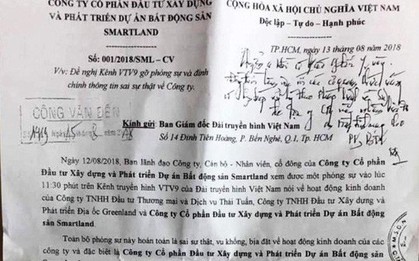 CÔNG TY CỔ PHẦN ĐẦU TƯ XÂY DỰNG
VÀ PHÁT TRIỂN DỰ ÁN BẤT ĐỘNG SẢN
SMARTLAND
Số: 001/2018/SML - CV
V/v: Đề nghị Kênh VTV9 gỡ phóng sự và đính
chính thông tin sai sự thật về Công ty.
CỘNG HÒA XÃ HỘI CHỦ NGHĨA VIỆT NAM
Độc lập - Tự do - Hạnh phúc
TP.HCM, ngày 13 tháng 08 năm 2018
CÔNG VĂN ĐẾN
Kính gửi: Ban Giám đốc Đài truyền hình Việt Nam
Số 14 Đinh Tiên Hoàng, P. Bến Nghé, Q.1, Tp. HCM
Ngày 12/08/2018, Ban Lãnh đạo Công ty, Cán bộ - Nhân viên, cổ đông của Công ty Cổ phần
Đầu tư Xây dựng và Phát triển Dự án Bất động sản Smartland xem được một phóng sự vào lúc
11:30 phút trên Kênh truyền hình VTV9 của Đài truyền hình Việt Nam nói về hoạt động kinh doanh
của Công ty TNHH Đầu tư Thương mại và Dịch vụ Thái Tuấn, Công ty TNHH Đầu tư Xây dựng và
Phát triển Địa ốc Greenland và Công ty Cổ phần Đầu tư Xây dựng và Phát triển Dự án Bất động
sản Smartland.
Toàn bộ phóng sự này hoàn toàn là sai sự thật, vu khống, bịa đặt về hoạt động kinh doanh của các
công ty và đặc biệt là Công ty Cổ phần Đầu tư Xây dựng và Phát triển Dự án Bất động sản